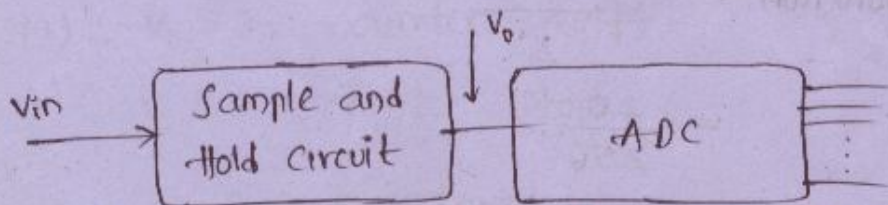 V₀
Vin
Sample and
Hold circuit
ADC